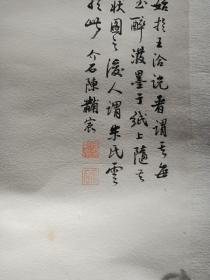 始於王洽说者謂其每
醉潑墨于紙上隨其
狀圖之後人謂朱氏雲
於此 介石陳黻宸